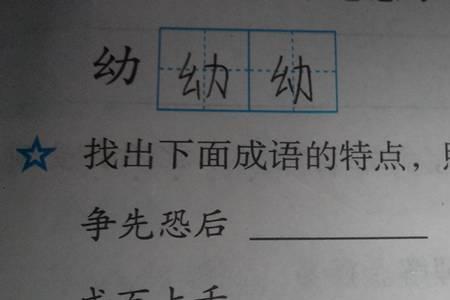 幼 幼 幼
找出下面成语的特点，
争先恐后